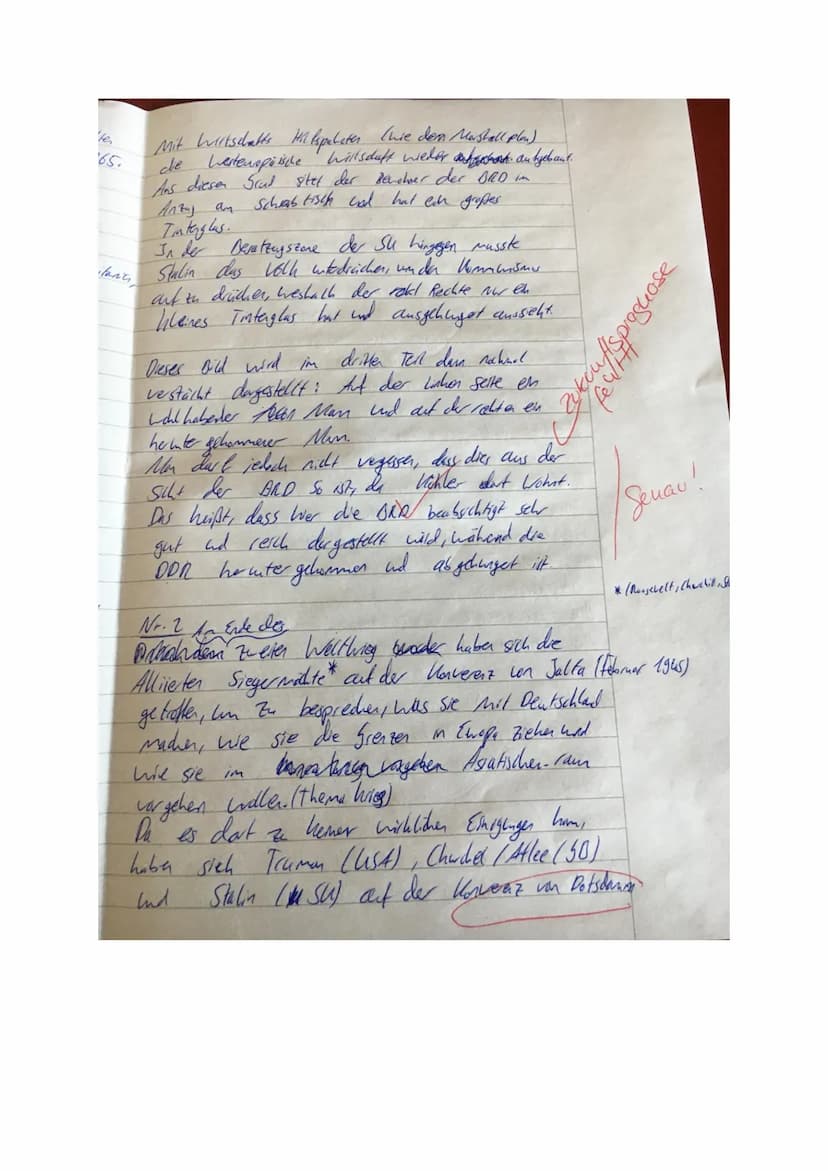 65.
Mit Wirtschafts Hilfspaketen (wie dem Marshallplan)
die Westeuropäische Wirtschaft wieder aufgebaut.
Aus diesen Grud sitzt der Bewohner der BRD im
Anzug am Schreibtisch und hat ein großes
Tintenglas.
In der Besatzugszone der SU hingegen musste
Stalin das Volk unterdrücken, um den Kommunismus
auf zu drücken, weshalb der Rechte nur ein
kleines Tintenglas hat und ausgehungert aussieht.
Dieses Bild wird im dritten Teil dann nochmal
verstärkt dargestellt: Auf der Linken Seite ein
wohlhabender Mann und auf der rechten ein
herruntergekommener Mann.
Zukunftsprognose
fehlt
Man darf jedoch nicht vergessen, dass dies aus der
Sicht der BRD so ist, da Köhler dort wohnt.
Das heißt, dass hier die BRD beabsichtigt sehr
gut und reich dargestellt wird, während die
DDR heruntergekommen und abgehungert ist
Genau!
Nr. 2 Am Ende des
zweiten Weltkrieg haben sich die
* (Roosevelt, Churchill, S
Alliierten Siegermächte* auf der Konverenz von Jalta (Februar 1945)
getroffen, um zu besprechen, was sie mit Deutschland
machen, wie sie die Grenzen in Europa ziehen und
wie sie im Asiatischen-raum
vorgehen wollen. (Thema Krieg)
Da es dort zu keiner wirklichen Einigungen kam,
haben sich Truman (USA), Churchel / Atlee (GB)
und Stalin (SU) auf der Konverenz von Potsdam